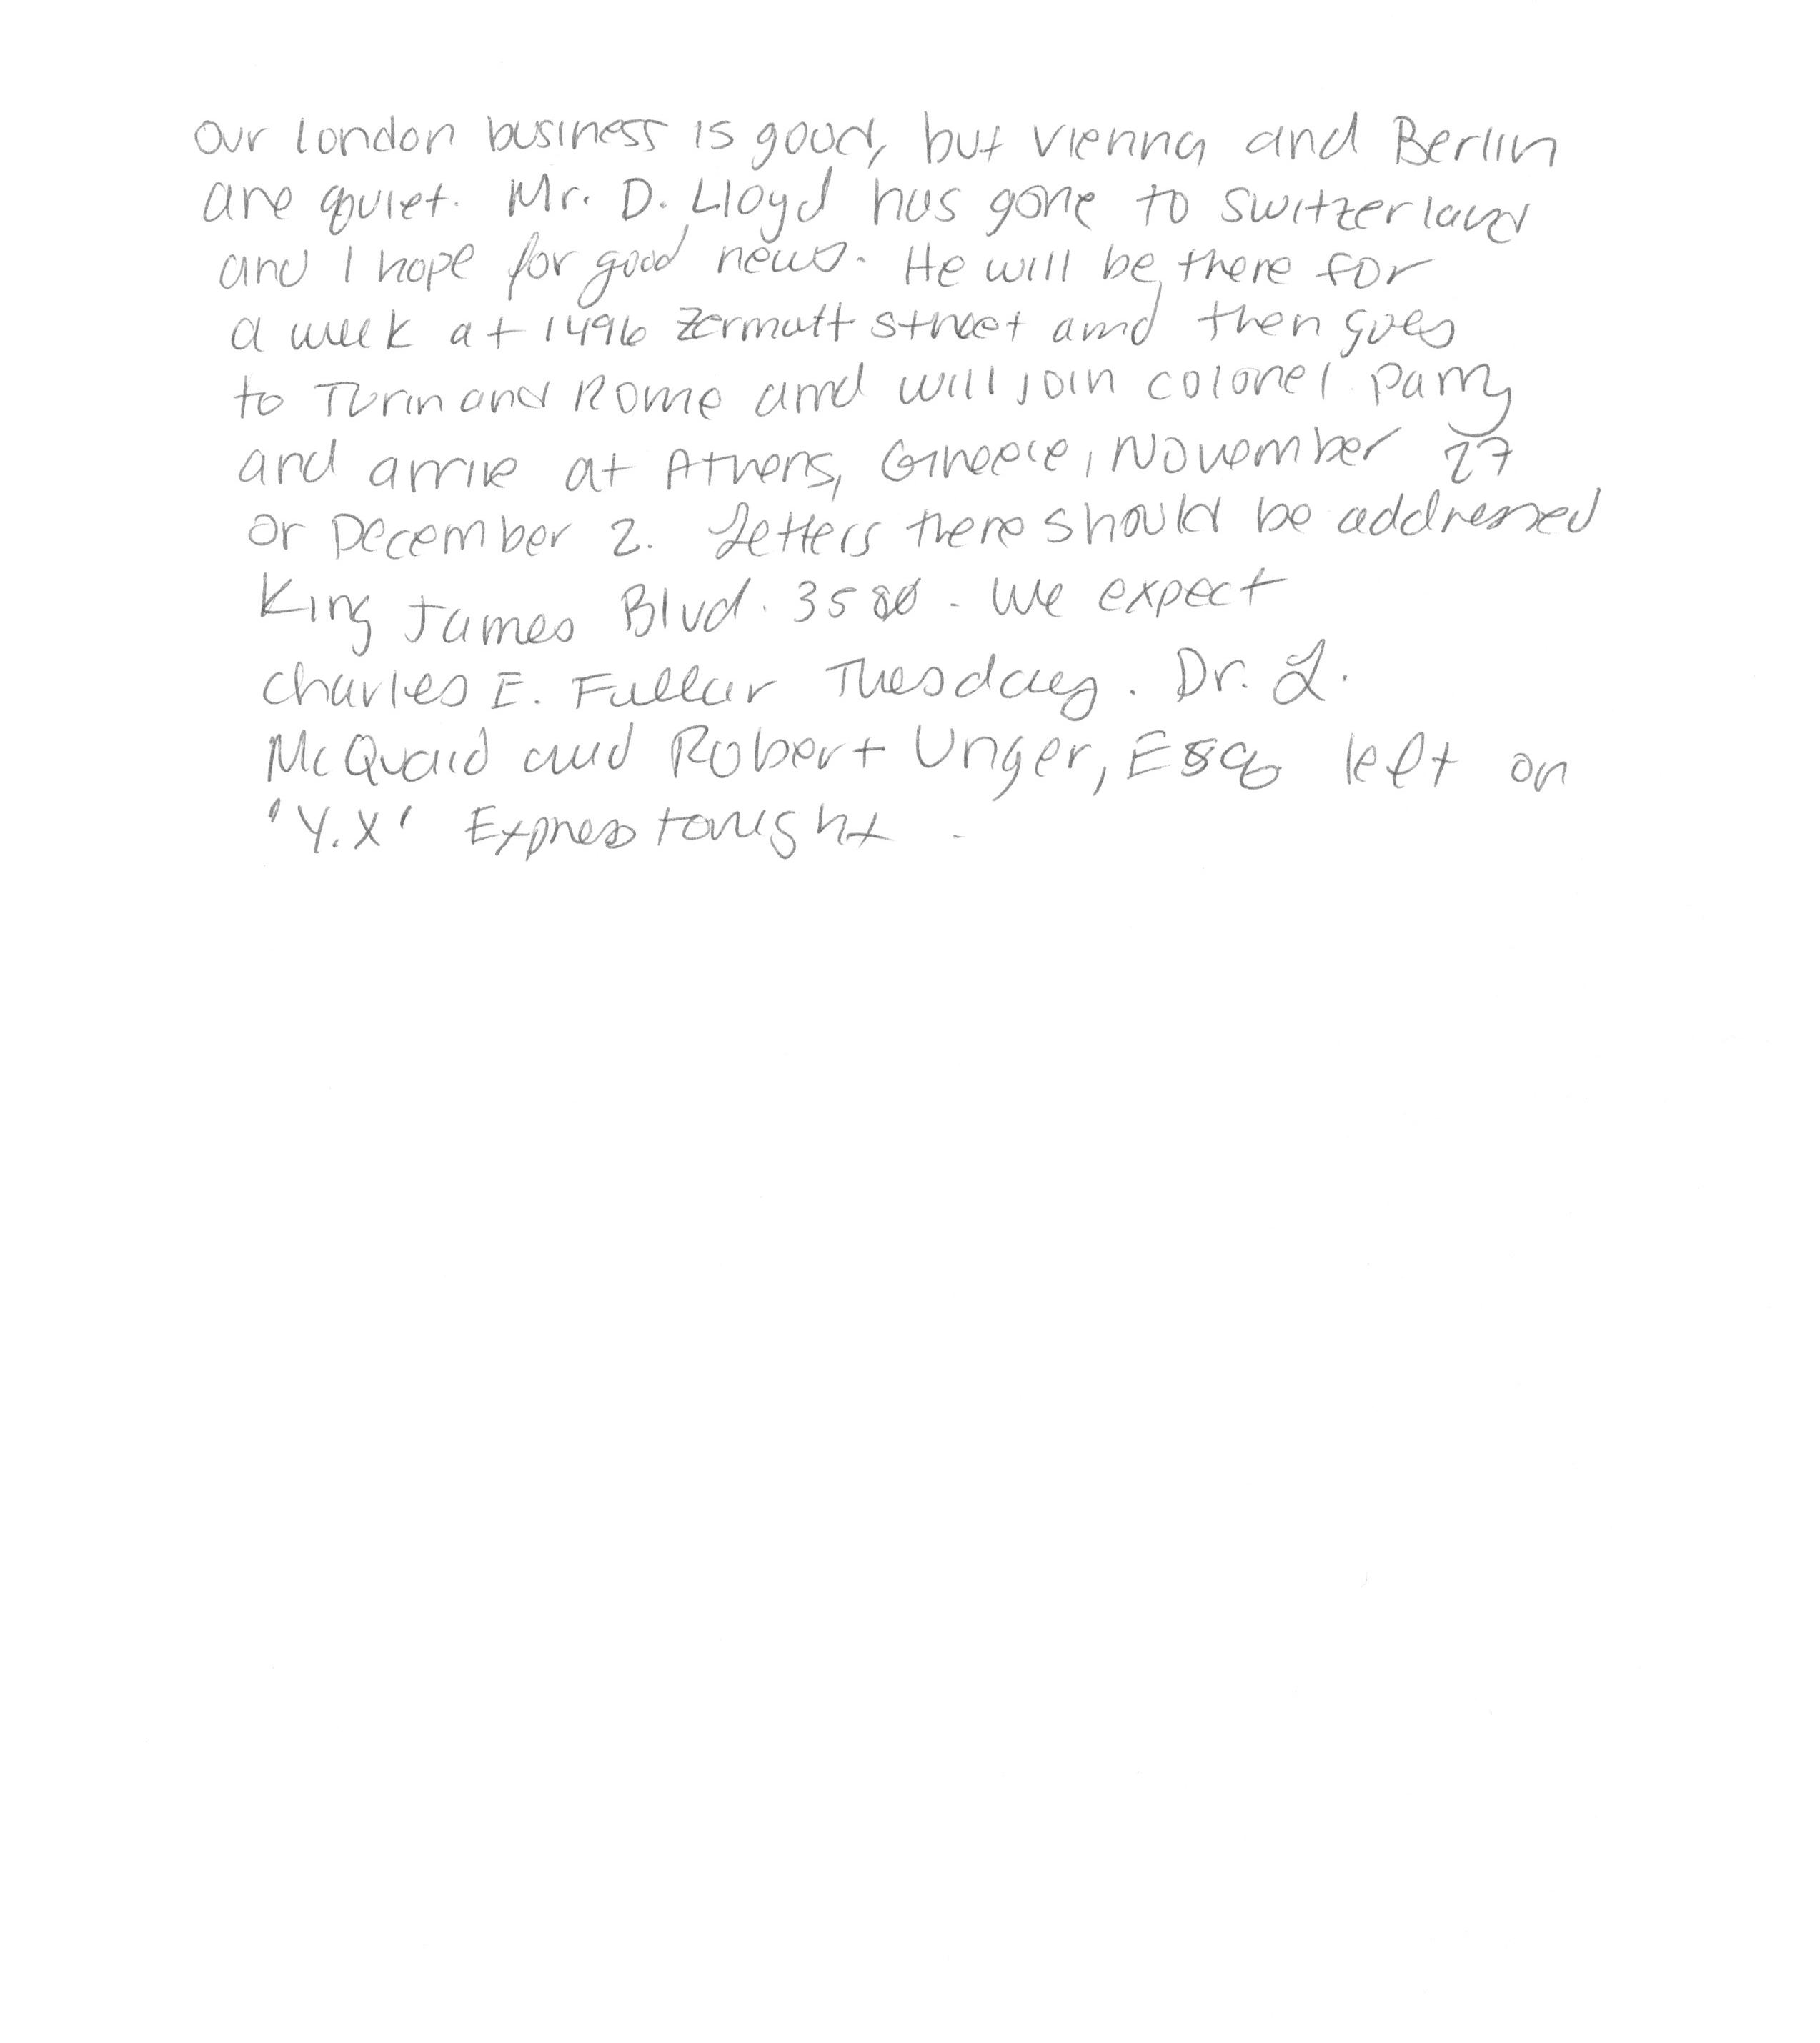 Our London business is good, but Vienna and Berlin
are quiet. Mr. D. Lloyd has gone to Switzerland
and I hope for good news. He will be there for
a week at 1496 Zermatt street and then goes
to Turin and Rome and will join Colonel Parry
and arrive at Athens, Greece, November 27
or December 2. Letters there should be addressed
King James Blvd. 3580. We expect
Charles E. Fuller Tuesday. Dr. L.
McQuaid and Robert Unger, Esq left on
'Y.X' Express tonight.